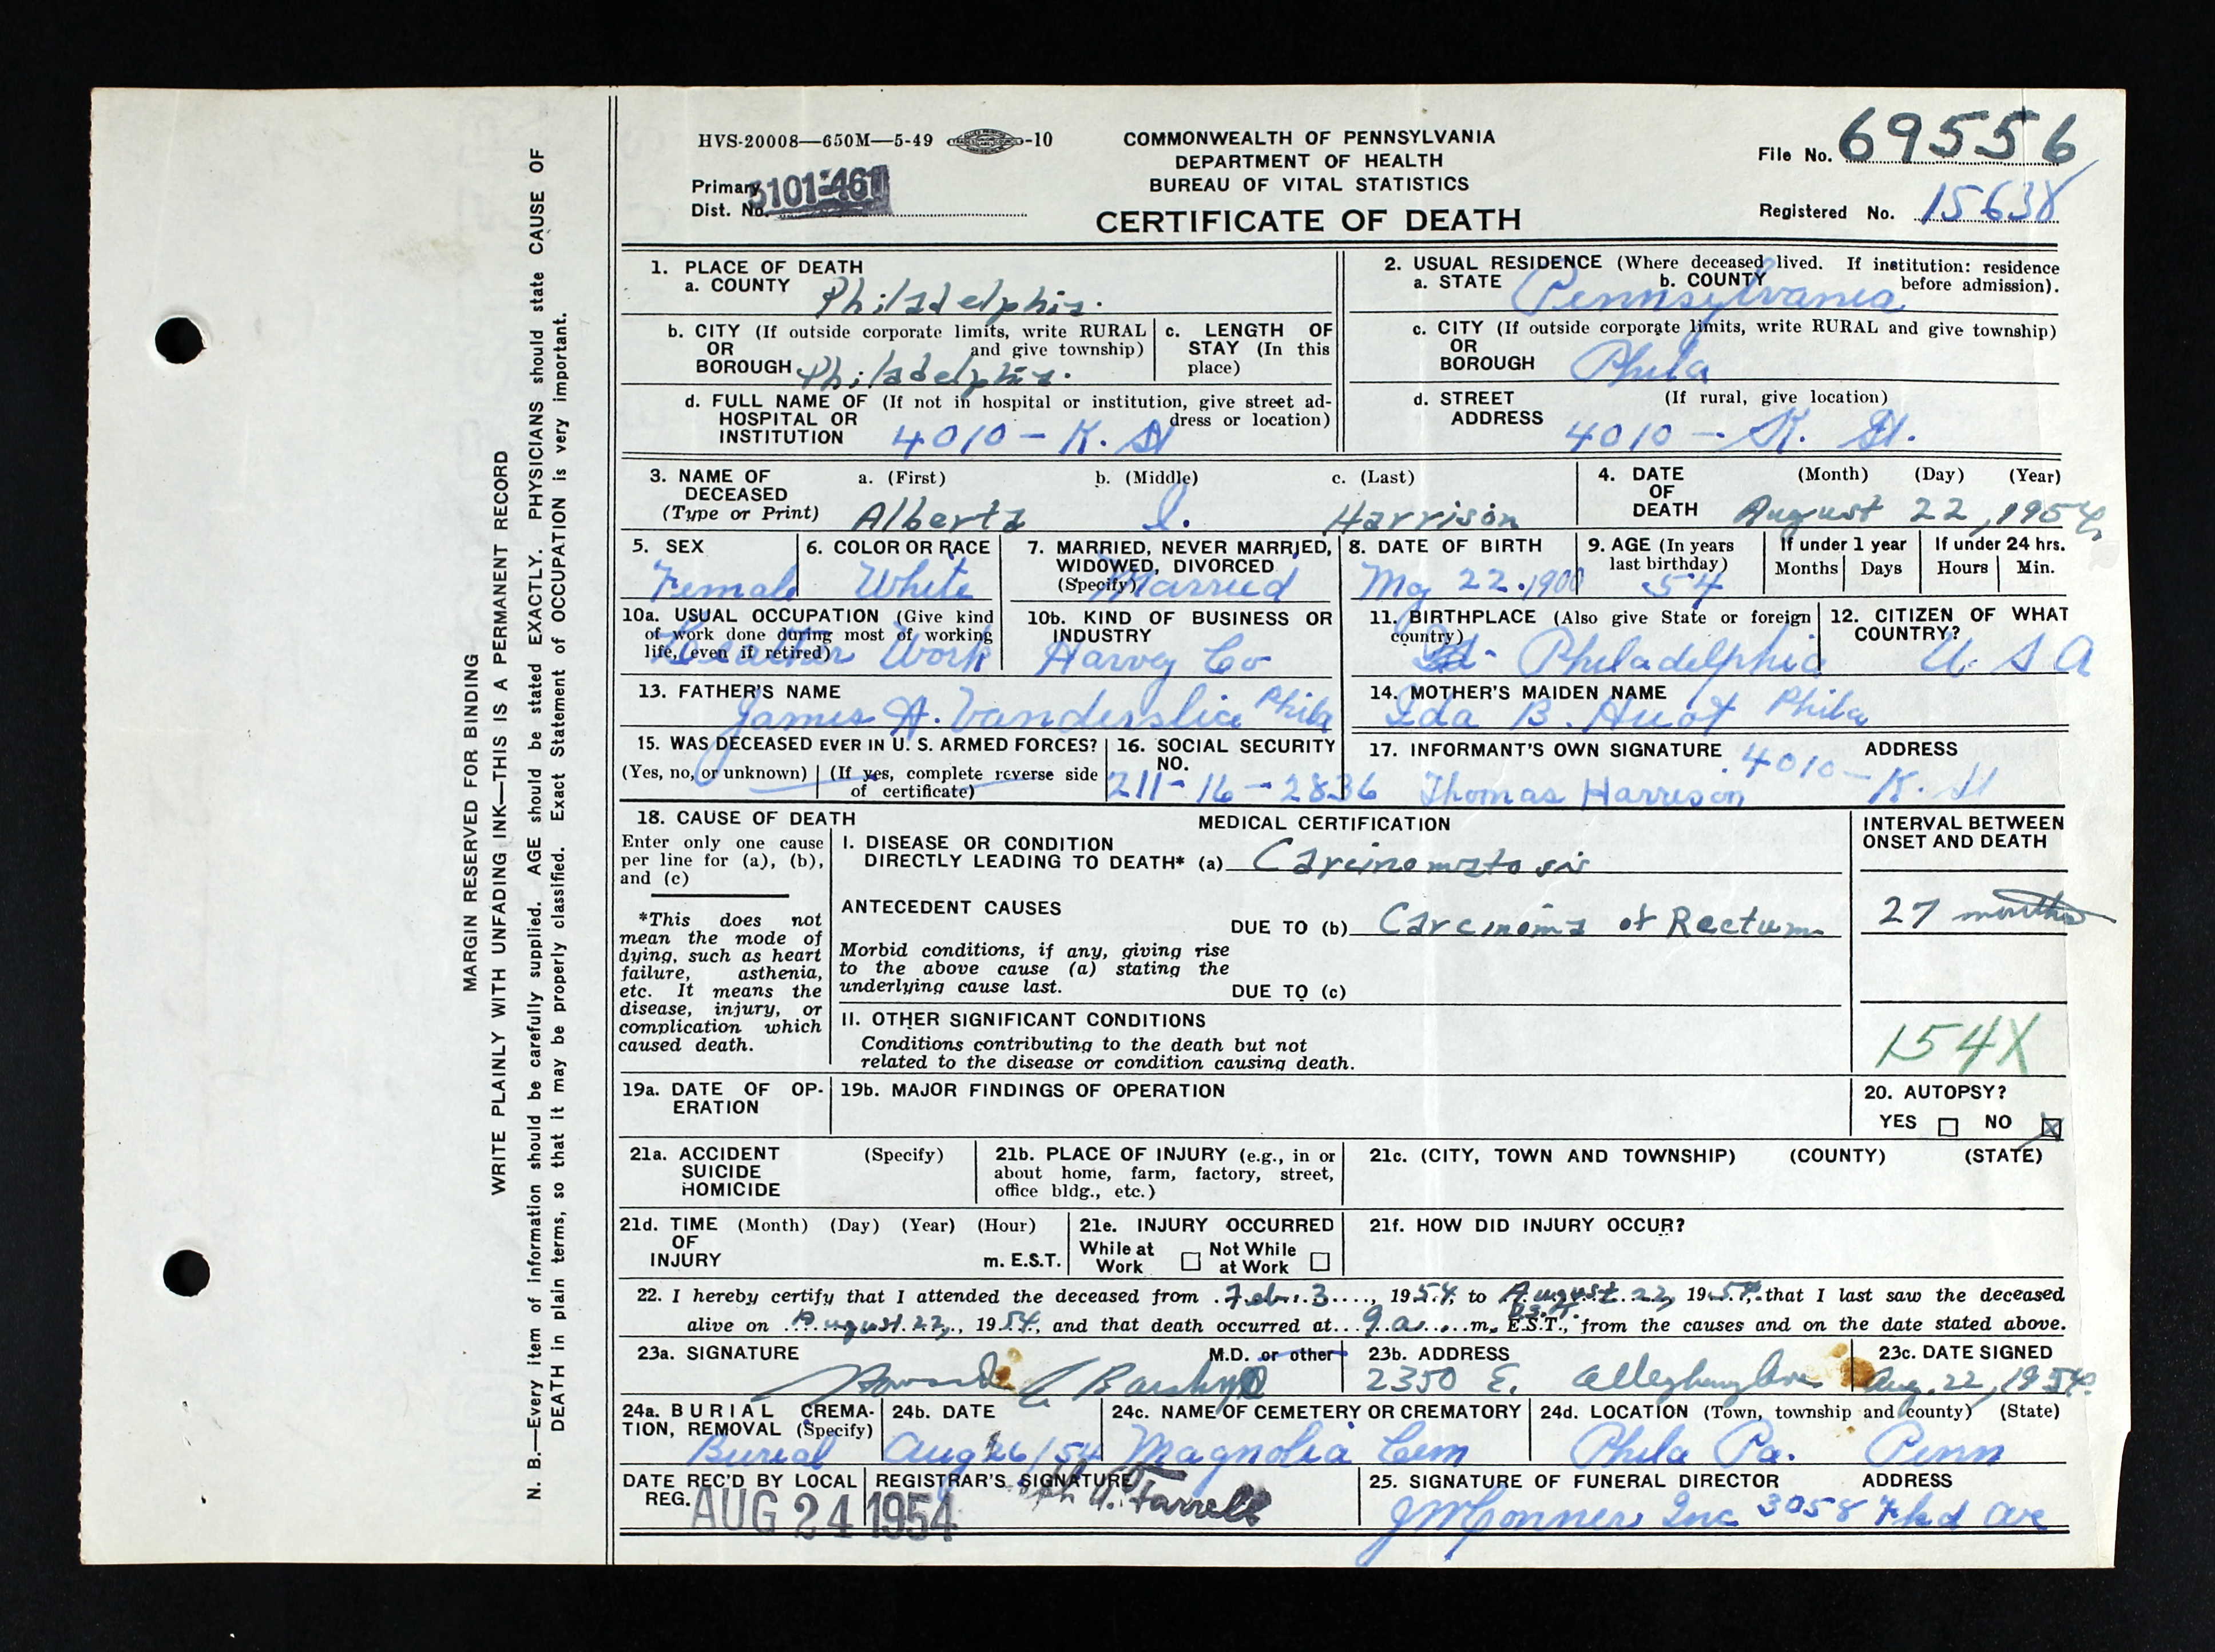 HVS-20008—650M—5-49 -10
COMMONWEALTH OF PENNSYLVANIA
DEPARTMENT OF HEALTH
BUREAU OF VITAL STATISTICS
CERTIFICATE OF DEATH
File No. 69556
Registered No. 15638
Primary
Dist. No.
1. PLACE OF DEATH
a. COUNTY Philadelphia.
b. CITY (If outside corporate limits, write RURAL
OR and give township)
BOROUGH Philadelphia.
c. LENGTH OF
STAY (In this
place)
d. FULL NAME OF (If not in hospital or institution, give street ad-
HOSPITAL OR dress or location)
INSTITUTION 4010 - K. St
2. USUAL RESIDENCE (Where deceased lived. If institution: residence
a. STATE b. COUNTY before admission).
Pennsylvania
c. CITY (If outside corporate limits, write RURAL and give township)
OR
BOROUGH Phila
d. STREET (If rural, give location)
ADDRESS 4010 - K. St.
3. NAME OF a. (First) b. (Middle) c. (Last)
DECEASED
(Type or Print) Alberta I. Harrison
4. DATE (Month) (Day) (Year)
OF
DEATH August 22, 1954
5. SEX
Female
6. COLOR OR RACE
White
7. MARRIED, NEVER MARRIED,
WIDOWED, DIVORCED
(Specify) Married
8. DATE OF BIRTH
May 22. 1900
9. AGE (In years
last birthday)
54
If under 1 year
Months Days
If under 24 hrs.
Hours Min.
10a. USUAL OCCUPATION (Give kind
of work done during most of working
life, even if retired)
Leather Work
10b. KIND OF BUSINESS OR
INDUSTRY
Harvey Co
11. BIRTHPLACE (Also give State or foreign
country)
Philadelphia
12. CITIZEN OF WHAT
COUNTRY?
U. S A
13. FATHER'S NAME
James A. Vanderslice Phila
14. MOTHER'S MAIDEN NAME
Ida B. Huot Phila
15. WAS DECEASED EVER IN U. S. ARMED FORCES?
(Yes, no, or unknown) (If yes, complete reverse side
of certificate)
16. SOCIAL SECURITY
NO.
211-16-2836
17. INFORMANT'S OWN SIGNATURE ADDRESS
Thomas Harrison 4010 - K. St
18. CAUSE OF DEATH
Enter only one cause
per line for (a), (b),
and (c)
*This does not
mean the mode of
dying, such as heart
failure, asthenia,
etc. It means the
disease, injury, or
complication which
caused death.
MEDICAL CERTIFICATION
I. DISEASE OR CONDITION
DIRECTLY LEADING TO DEATH* (a) Carcinomatosis
ANTECEDENT CAUSES
DUE TO (b) Carcinoma of Rectum
Morbid conditions, if any, giving rise
to the above cause (a) stating the
underlying cause last.
DUE TO (c)
II. OTHER SIGNIFICANT CONDITIONS
Conditions contributing to the death but not
related to the disease or condition causing death.
INTERVAL BETWEEN
ONSET AND DEATH
27 months
154X
19a. DATE OF OP-
ERATION
19b. MAJOR FINDINGS OF OPERATION
20. AUTOPSY?
YES NO
21a. ACCIDENT (Specify)
SUICIDE
HOMICIDE
21b. PLACE OF INJURY (e.g., in or
about home, farm, factory, street,
office bldg., etc.)
21c. (CITY, TOWN AND TOWNSHIP) (COUNTY) (STATE)
21d. TIME (Month) (Day) (Year) (Hour)
OF
INJURY m. E.S.T.
21e. INJURY OCCURRED
While at Work Not While at Work
21f. HOW DID INJURY OCCUR?
22. I hereby certify that I attended the deceased from Feb. 3, 1954, to August 22, 1954, that I last saw the deceased
alive on August 22, 1954, and that death occurred at 9 a. m. E.S.T., from the causes and on the date stated above.
23a. SIGNATURE M.D. or other
23b. ADDRESS
2350 E. Allegheny Ave
23c. DATE SIGNED
Aug. 22, 1954
24a. BURIAL CREMA-
TION, REMOVAL (Specify)
Burial
24b. DATE
Aug 26/54
24c. NAME OF CEMETERY OR CREMATORY
Magnolia Cem
24d. LOCATION (Town, township and county) (State)
Phila Pa. Penn
DATE REC'D BY LOCAL
REG. AUG 24 1954
REGISTRAR'S SIGNATURE
A. Farrell
25. SIGNATURE OF FUNERAL DIRECTOR ADDRESS
Inc 3058 Fkd Ave
MARGIN RESERVED FOR BINDING
WRITE PLAINLY WITH UNFADING INK—THIS IS A PERMANENT RECORD
N. B.—Every item of information should be carefully supplied. AGE should be stated EXACTLY. PHYSICIANS should state CAUSE OF
DEATH in plain terms, so that it may be properly classified. Exact Statement of OCCUPATION is very important.